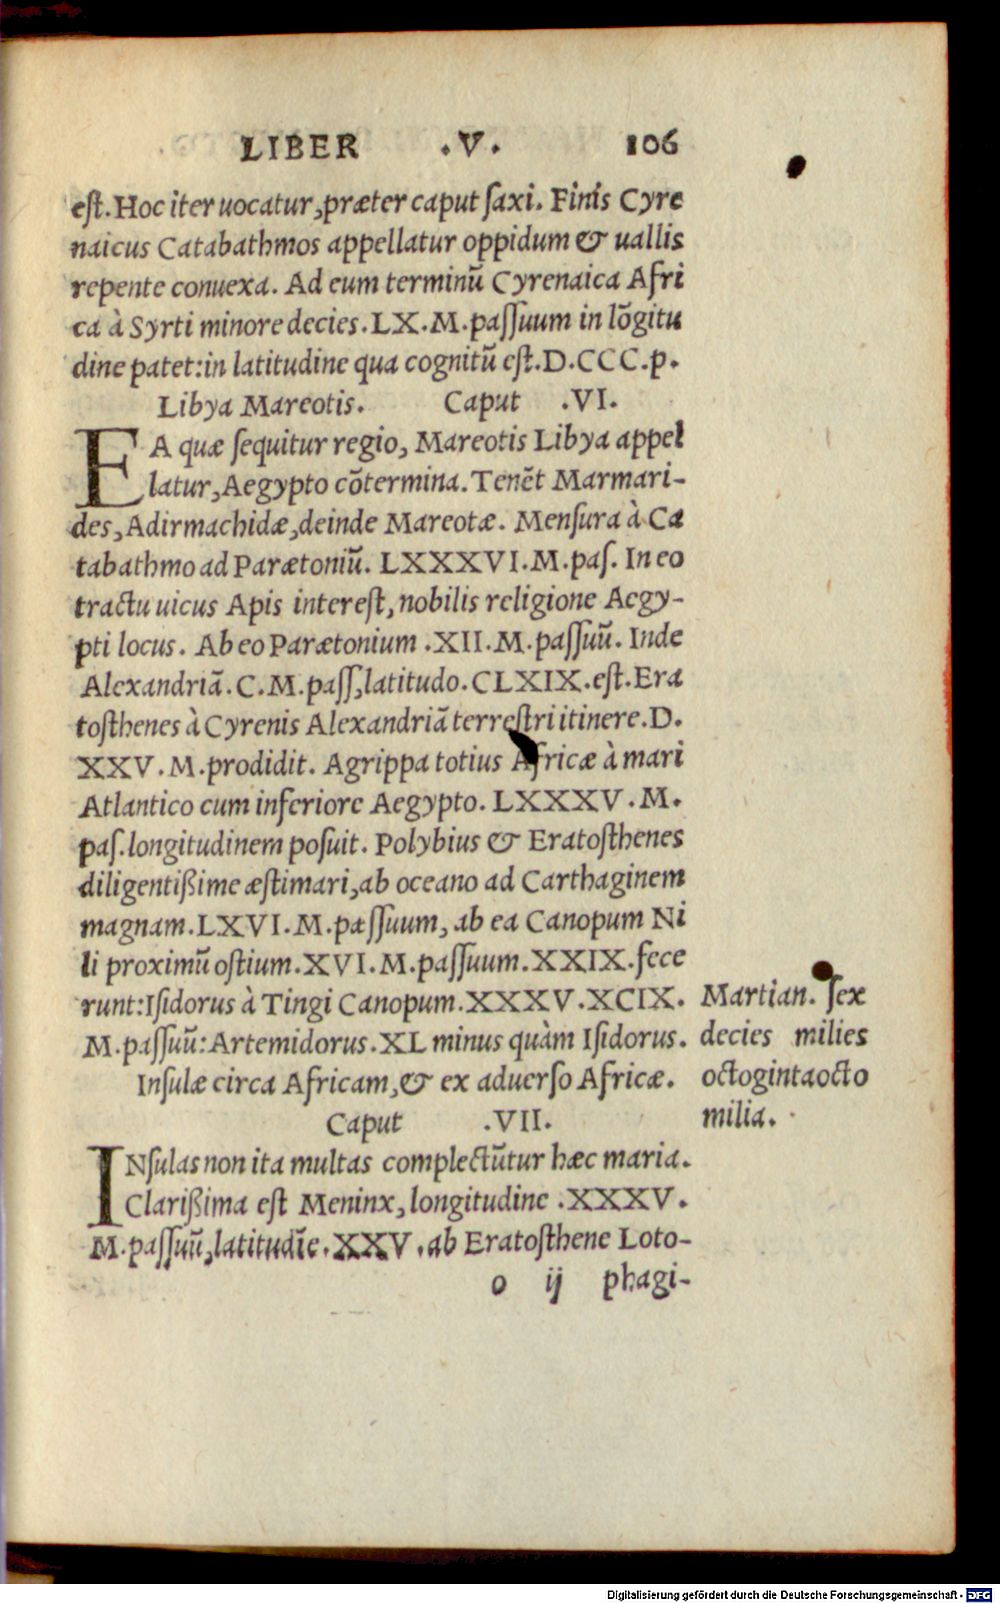 LIBER .V. 106
est. Hoc iter uocatur, præter caput saxi. Finis Cyre
naicus Catabathmos appellatur oppidum & uallis
repente conuexa. Ad eum terminū Cyrenaica Afri
ca à Syrti minore decies. LX. M. passuum in lōgitu
dine patet: in latitudine qua cognitū est. D. CCC. p.
Libya Mareotis. Caput .VI.
EA quæ sequitur regio, Mareotis Libya appel
latur, Aegypto cōtermina. Tenēt Marmari-
des, Adirmachidæ, deinde Mareotæ. Mensura à Ca
tabathmo ad Parætoniū. LXXXVI. M. pas. In eo
tractu uicus Apis interest, nobilis religione Aegy-
pti locus. Ab eo Parætonium .XII. M. passuū. Inde
Alexandriā. C. M. pass, latitudo. CLXIX. est. Era
tosthenes à Cyrenis Alexandriā terrestri itinere. D.
XXV. M. prodidit. Agrippa totius Africæ à mari
Atlantico cum inferiore Aegypto. LXXXV. M.
pas. longitudinem posuit. Polybius & Eratosthenes
diligentißime æstimari, ab oceano ad Carthaginem
magnam. LXVI. M. pæssuum, ab ea Canopum Ni
li proximū ostium. XVI. M. passuum. XXIX. fece
runt: Isidorus à Tingi Canopum. XXXV. XCIX.
M. passuū: Artemidorus. XL minus quàm Isidorus.
Martian. sex
decies milies
octogintaocto
milia.
Insulæ circa Africam, & ex aduerso Africæ.
Caput .VII.
INsulas non ita multas complectūtur hæc maria.
Clarißima est Meninx, longitudine .XXXV.
M. passuū, latitudīe. XXV. ab Eratosthene Loto-
o ij phagi-
Digitalisierung gefördert durch die Deutsche Forschungsgemeinschaft - DFG